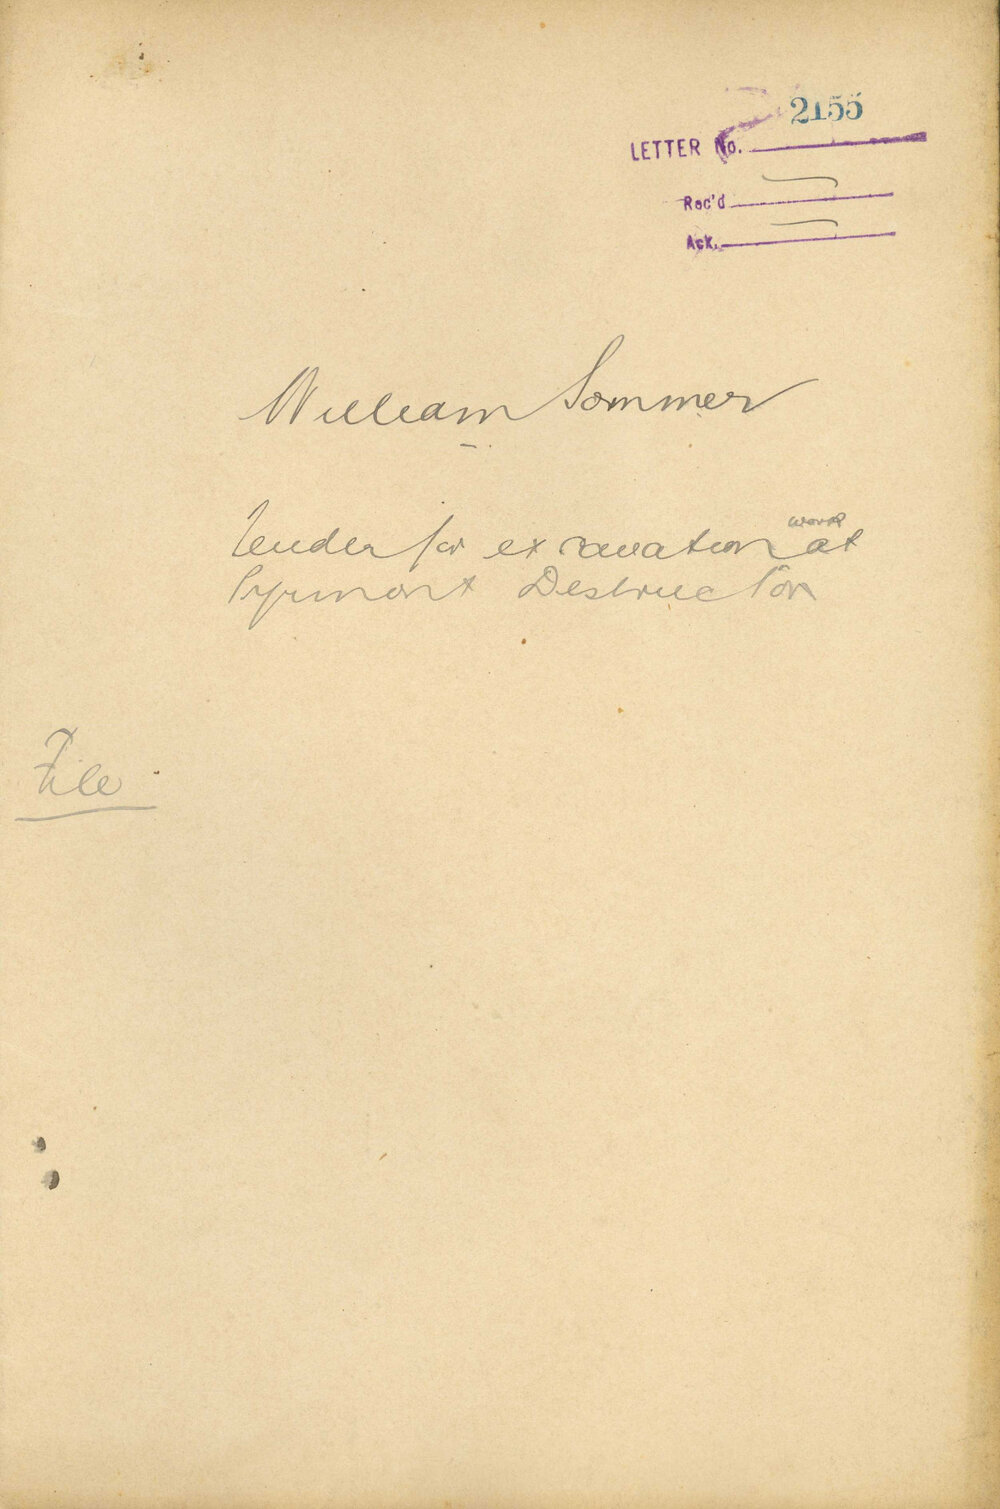 2155
LETTER No.
Rec'd
Ack.
William Sommer
Tender for excavation work at
Pyrmont Destructor
File